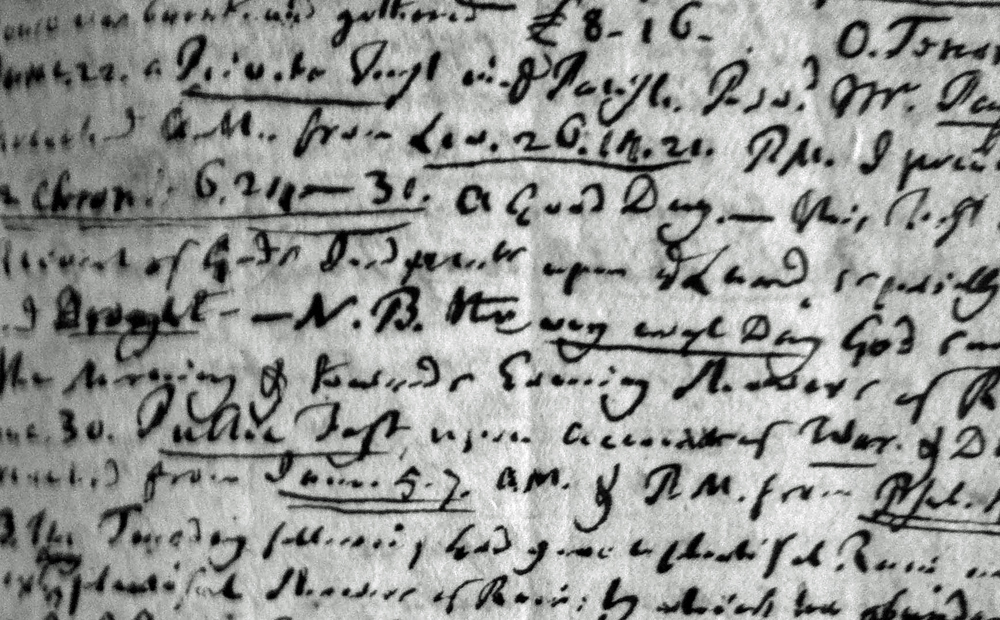 was burnt. and gathered £8-16-. O. Ten
June 22. a Private Fast in ye Parish. Pres.d Mr. Pa
A.M. from Lev. 26. 18.21. P.M. I prea
2 Chron: 6. 24 — 30. A Good Day. — this Fast
of Gods Judgments upon ye Land especially
Drought — N. B. the very next Day God
the Morning & towards Evening Showers of R
June. 30. Public Fast, upon account of War. & D
from Jam. 5. 7. A.M. & P.M. from Psal.
B. the Tuesday following God gave a plentiful Rain
plentiful Showers of Rain; by which the